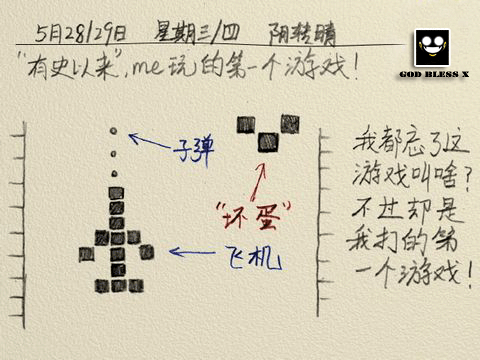 5月28/29日 星期三/四 阴转晴
GOD BLESS X
“有史以来”,me玩的第一个游戏!
子弹
“坏蛋”
飞机
我都忘了这
游戏叫啥?
不过却是
我打的第
一个游戏!